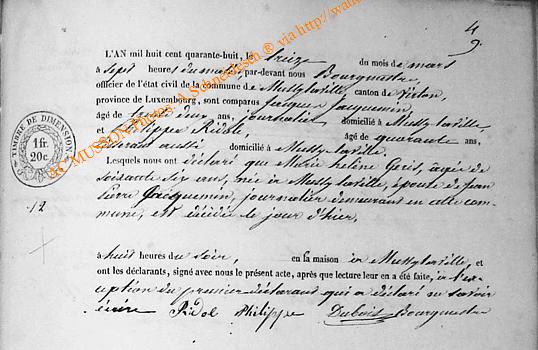 4
9.
L'AN mil huit cent quarante-huit, le treize du mois de mars
à sept heures du matin, par-devant nous Bourgmestre,
officier de l'état civil de la commune de Mussy laville, canton de Virton,
province de Luxembourg, sont comparus Jacques Jacquemin,
âgé de trente deux ans, journalier domicilié à Mussy laville,
et Philippe Ridole, âgé de quarante ans,
aussi domicilié à Mussy laville.
Lesquels nous ont déclaré que Marie heline Goris, agée de
soixante six ans, née à Mussy laville, épouse de Jean
Pierre Jacquemin, journalier demeurant en cette com-
mune, est décédée le jour d'hier,
à huit heures du soir, en sa maison à Mussy laville, et
ont les déclarants, signé avec nous le présent acte, après que lecture leur en a été faite, à l'ex-
ception du premier déclarant qui a déclaré ne savoir
écrire Ridol Philippe Dubois Bourgmestre
TIMBRE DE DIMENSION
1 fr.
20 c.
12
AC MUSSON Photos: A Schneidesch ® via http://